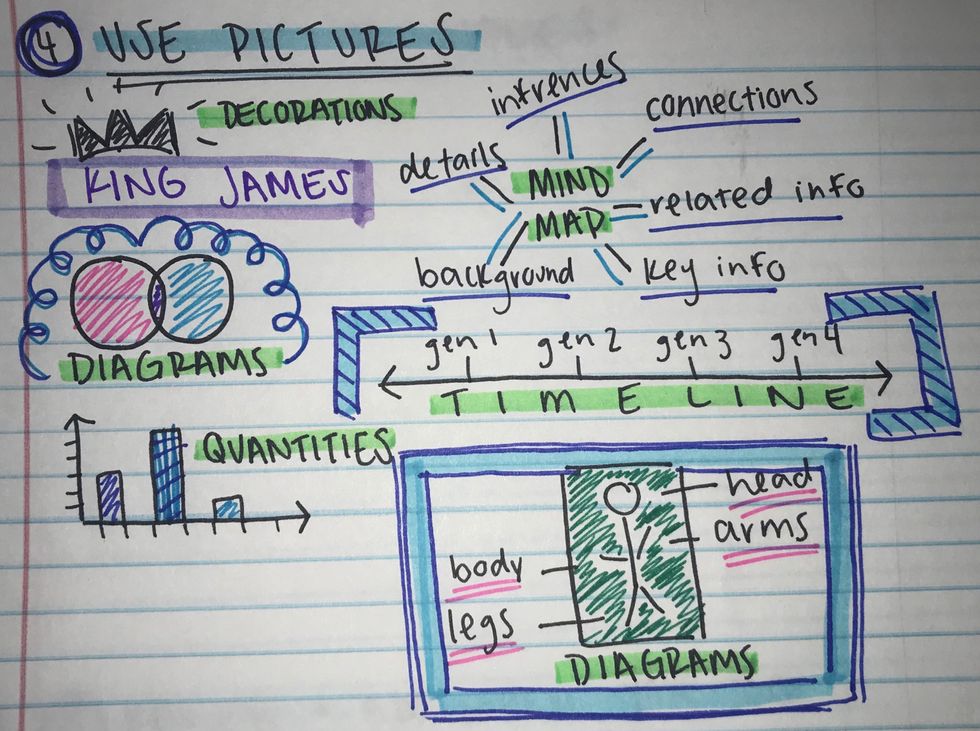 4 USE PICTURES
DECORATIONS
KING JAMES
DIAGRAMS
QUANTITIES
MIND
MAP
intrences
connections
details
related info
background
key info
gen 1 gen 2 gen 3 gen 4
TIMELINE
head
arms
body
legs
DIAGRAMS